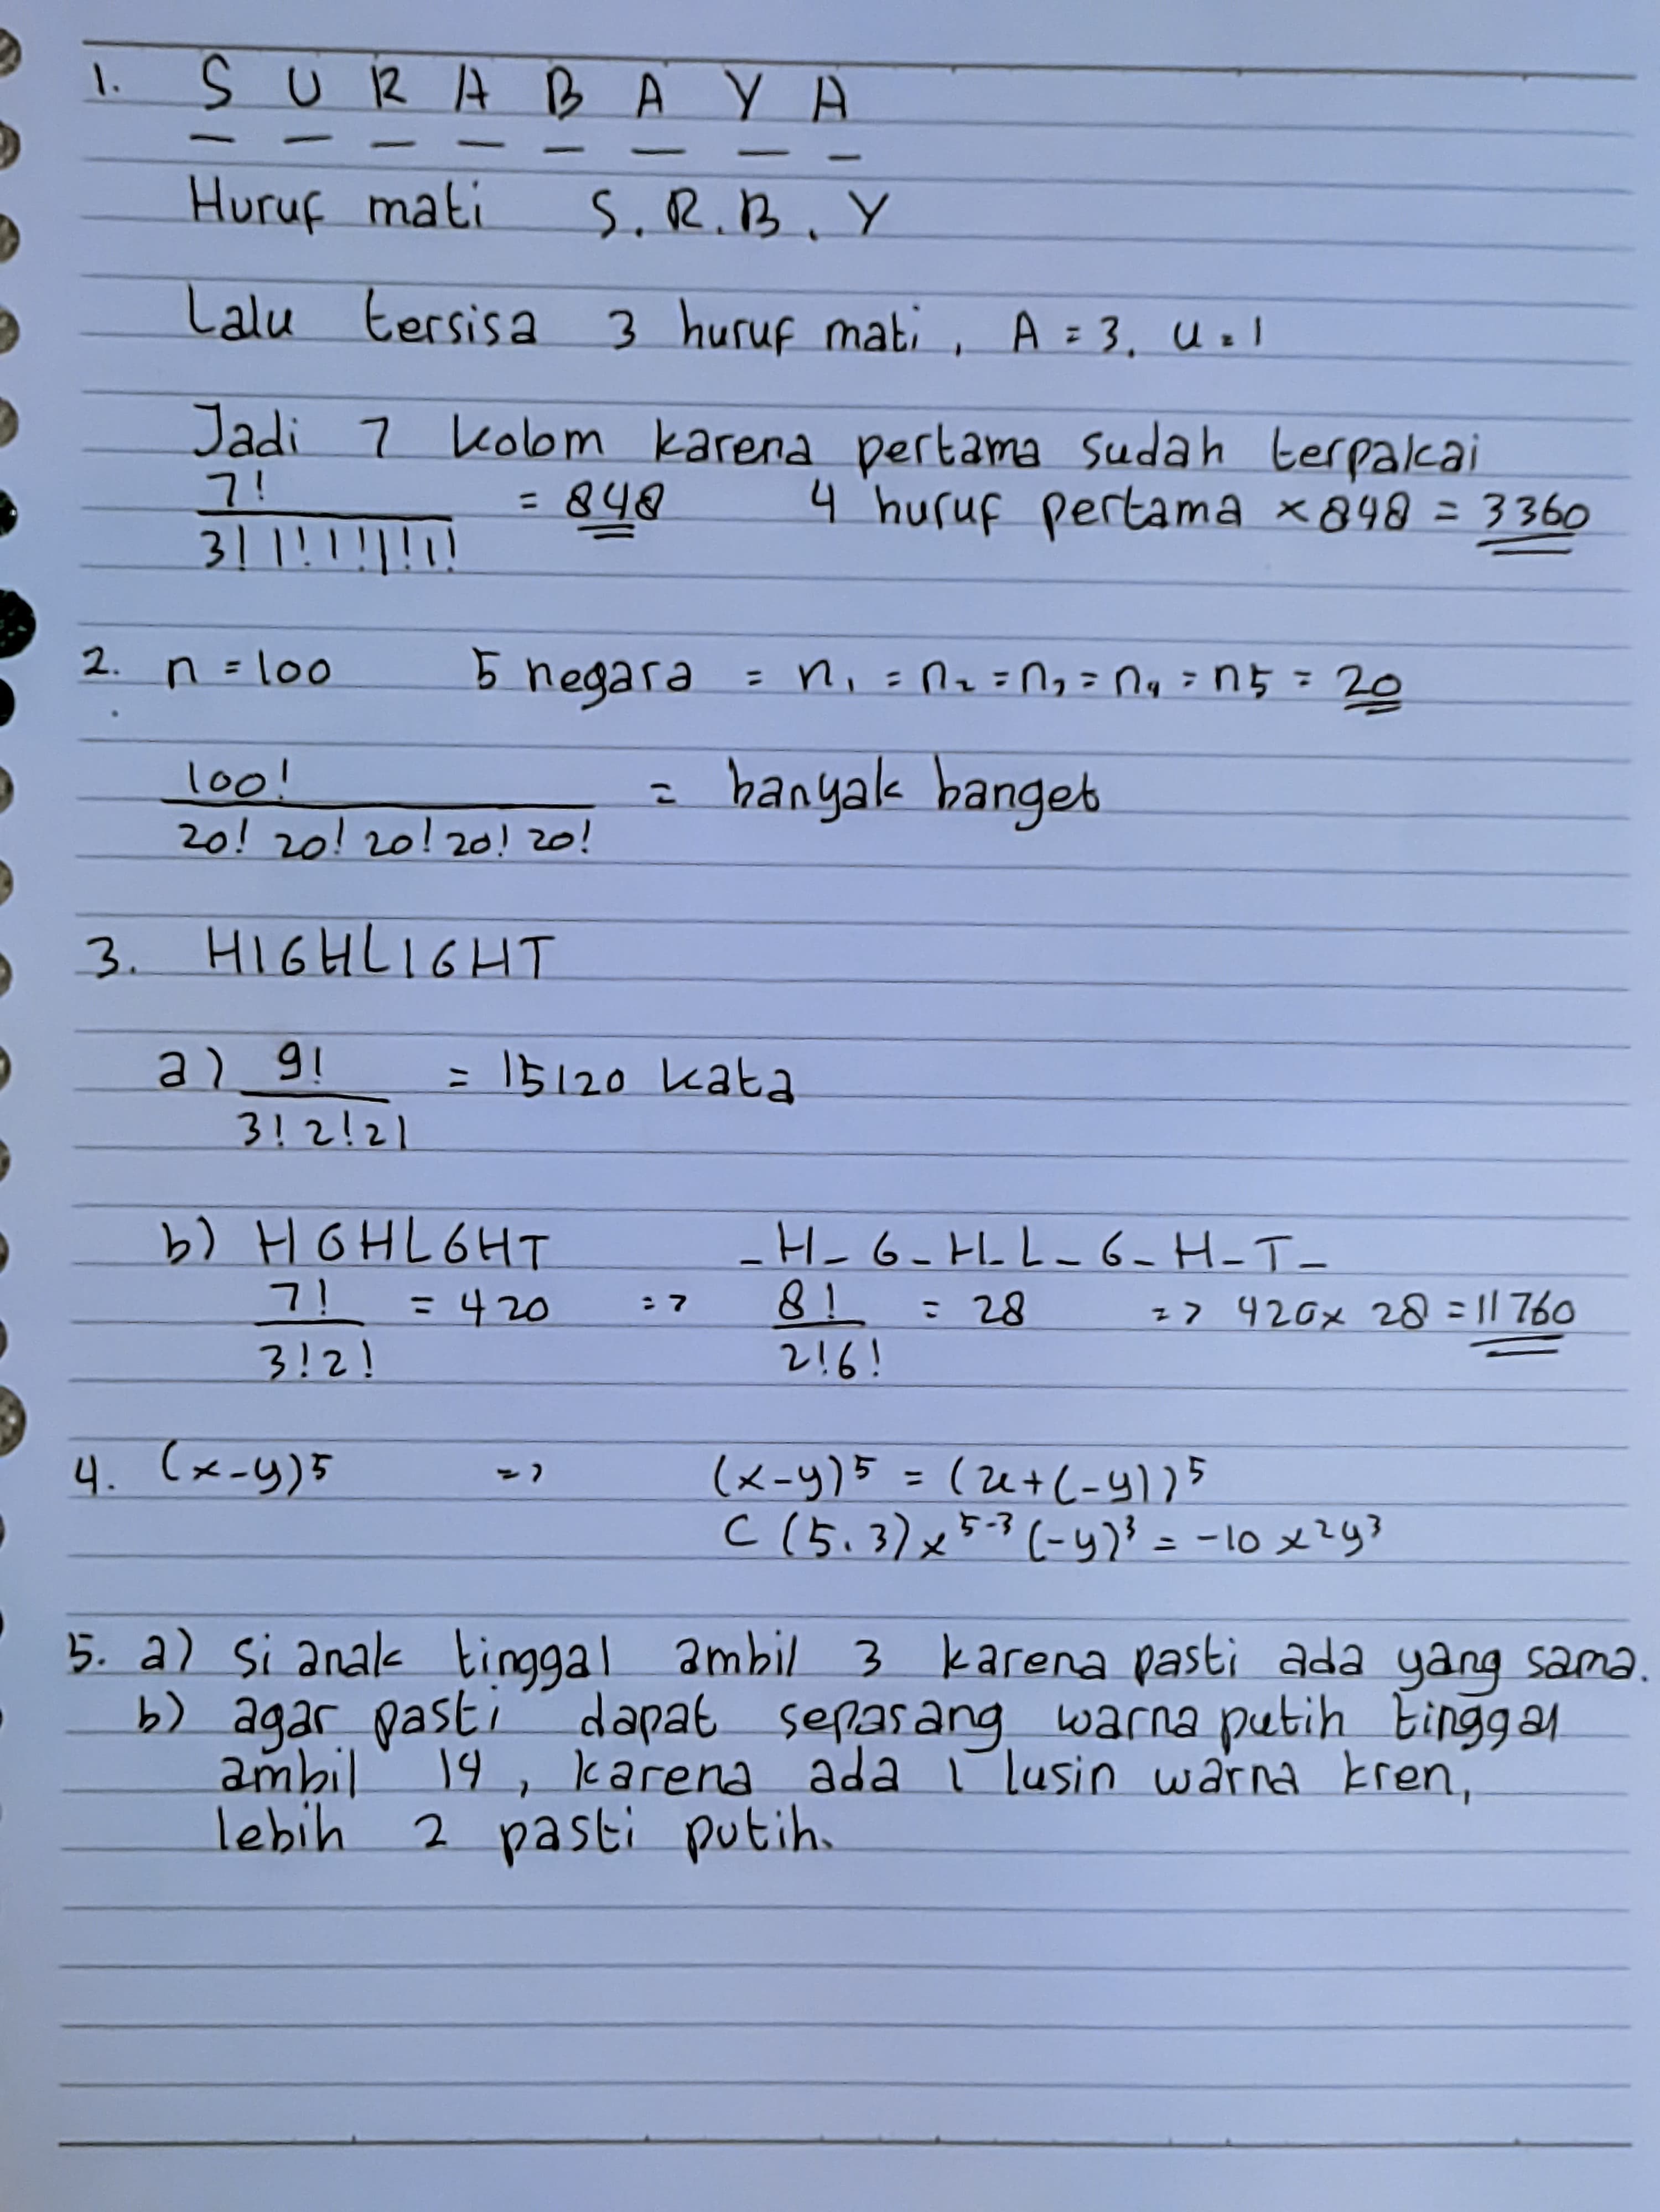 1. S U R A B A Y A
Huruf mati S. R. B. Y
Lalu tersisa 3 huruf mati, A = 3. U = 1
Jadi 7 kolom karena pertama sudah terpakai
7! / 3! 1! 1! 1! 1! = 848 4 huruf pertama × 848 = 3360
2. n = 100 5 negara = n1 = n2 = n3 = n4 = n5 = 20
100! / 20! 20! 20! 20! 20! = banyak banget
3. HIGHLIGHT
a) 9! / 3! 2! 2! = 15120 kata
b) HGHLGHT _H_G_H_L_G_H_T_
7! / 3! 2! = 420 => 8! / 2! 6! = 28 => 420 × 28 = 11760
4. (x-y)5 => (x-y)5 = (x+(-y))5
C (5.3) x5-3 (-y)3 = -10 x2y3
5. a) Si anak tinggal ambil 3 karena pasti ada yang sama.
b) agar pasti dapat sepasang warna putih tinggal
ambil 14, karena ada 1 lusin warna krem,
lebih 2 pasti putih.